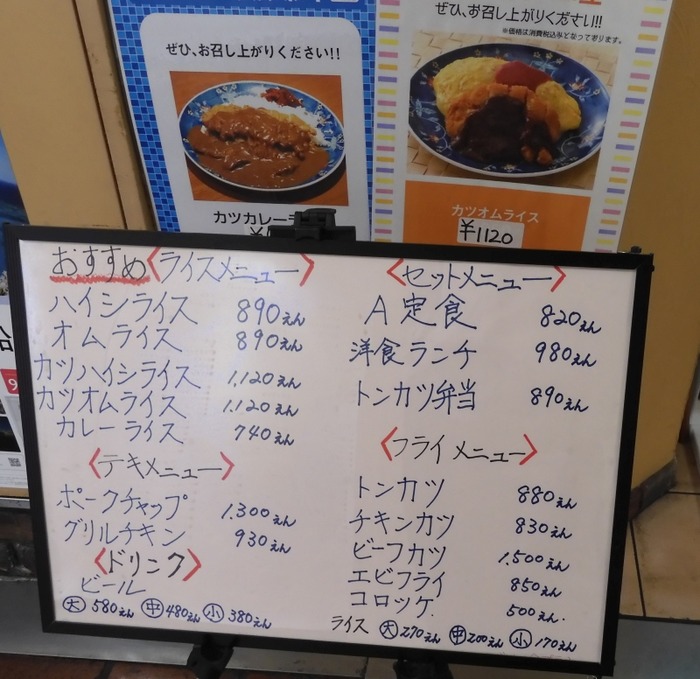 ぜひ、お召し上がりください!!
ぜひ、お召し上がりください!!
※価格は消費税込みとなっております。
カツカレー
カツオムライス
¥1120
おすすめ〈ライスメニュー〉
ハイシライス 890えん
オムライス 890えん
カツハイシライス 1,120えん
カツオムライス 1,120えん
カレーライス 740えん
〈テキメニュー〉
ポークチャップ 1,300えん
グリルチキン 930えん
〈ドリンク〉
ビール
大 580えん 中 480えん 小 380えん
〈セットメニュー〉
A定食 820えん
洋食ランチ 980えん
トンカツ弁当 890えん
〈フライメニュー〉
トンカツ 880えん
チキンカツ 830えん
ビーフカツ 1,500えん
エビフライ 850えん
コロッケ 500えん.
ライス 大 270えん 中 200えん 小 170えん